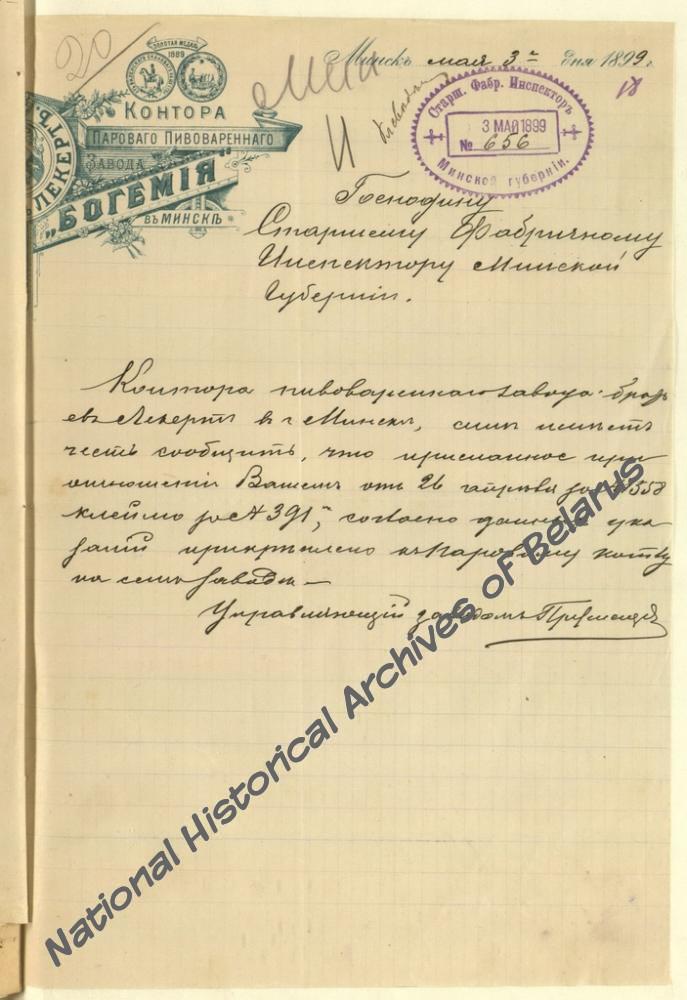 20
ЗОЛОТАЯ МЕДАЛЬ
1889
КОНТОРА
ПАРОВАГО ПИВОВАРЕННАГО
ЗАВОДА
ЛЕКЕРТЪ
„БОГЕМІЯ“
ВЪ МИНСКѢ
Минскъ мая 3 дня 1899 г.
Старш. Фабр. Инспекторъ
3 МАЙ 1899
№ 656
Минской губерніи.
Господину
Старшему Фабричному
Инспектору Минской
Губерніи.
Контора пивовареннаго завода брать
евъ Лекертъ въ г Минскѣ, симъ имѣетъ
честь сообщить, что присланное при
отношеніи Вашемъ отъ 26 Апрѣля за № 558
клеймо за № 391, согласно даннымъ ука
заній прикрѣплено къ паровому котлу
на семъ заводѣ —
Управляющій заводомъ
National Historical Archives of Belarus